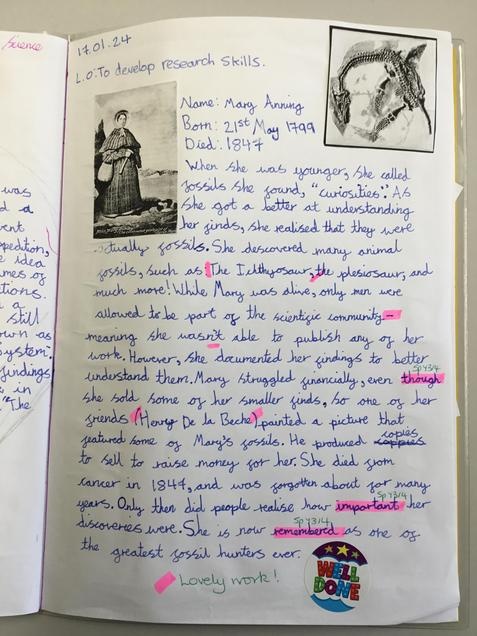 Science
17.01.24
L.O: To develop research skills.
Name: Mary Anning
Born: 21st May 1799
Died: 1847
When she was younger, she called
fossils she found, "curiosities". As
she got a better at understanding
her finds, she realised that they were
actually fossils. She descovered many animal
fossils, such as: The Icthyosaur, the plesiosaur, and
much more! While Mary was alive, only men were
allowed to be part of the scientific community -
meaning she wasn't able to publish any of her
work. However, she documented her findings to better
understand them. Mary struggled financially, even though
Sp Y3/4
she sold some of her smaller finds, so one of her
friends (Henry De la Beche) painted a picture that
featured some of Mary's fossils. He produced coppies
copies
to sell to raise money for her. She died from
cancer in 1847, and was forgotten about for many
years. Only then did people realise how important her
Sp Y3/4
discoveries were. She is now remembered as one of
Sp Y3/4
the greatest fossil hunters ever.
Lovely work!
WELL
DONE
was
d a
vent
pedition,
e idea
mes of
tions.
n a
still
own as
system.
findings
in
"The